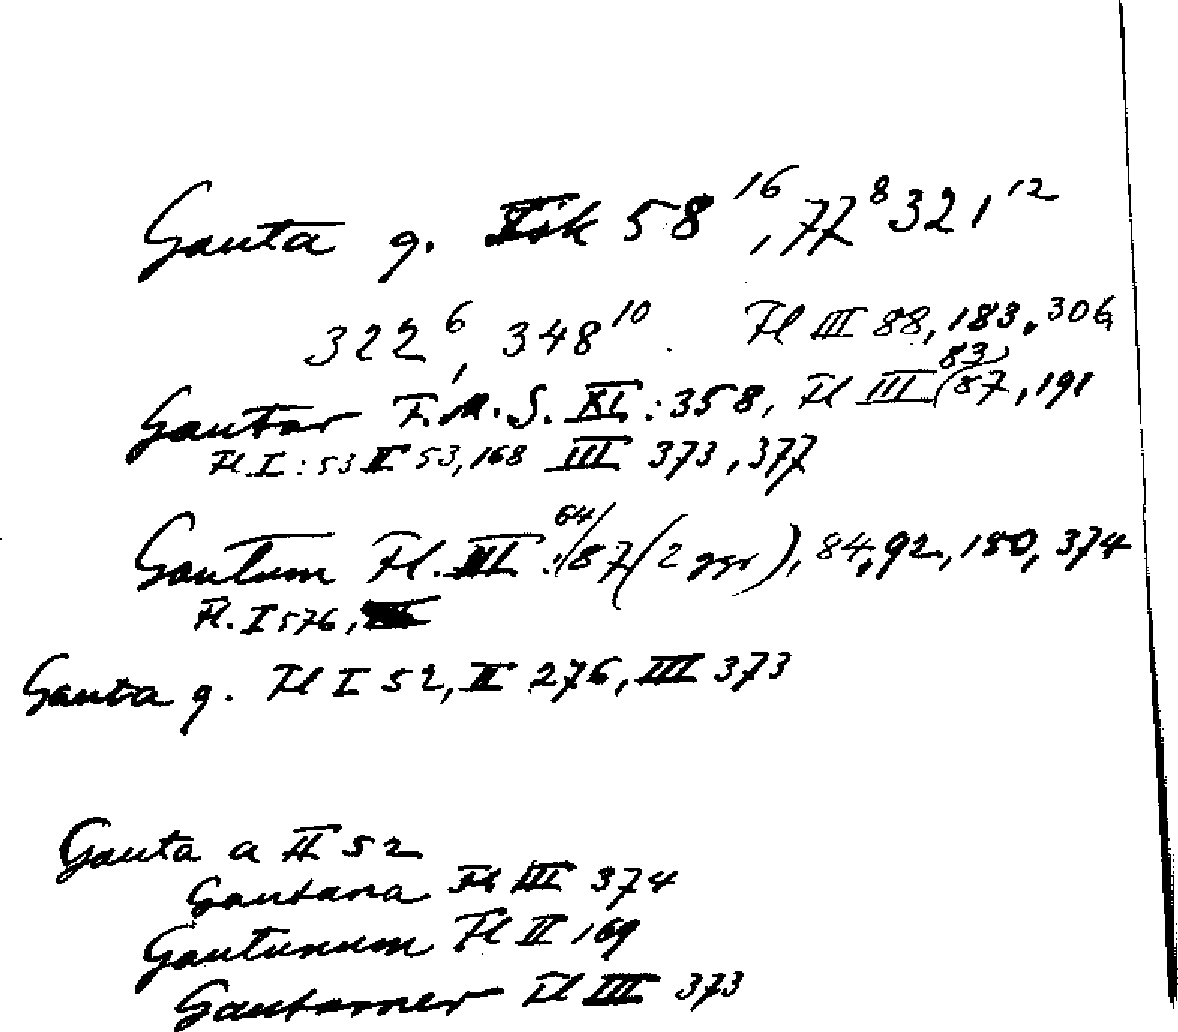 Gauta g. 58 16, 77 8 321 12
322 6, 348 10. Fl III 88, 183, 306
Gautar F.M.S. XI: 358, Fl III (83) 87, 191
Fl I: 53 II 53, 168 III 373, 377
Gautum Fl. III: 64/87 (2 ggr), 84, 92, 180, 374
Fl. I 576,
Gauta g. Fl I 52, II 276, III 373
Gauta a II 52
Gautana Fl III 374
Gautunum Fl II 169
Gautarner Fl III 373